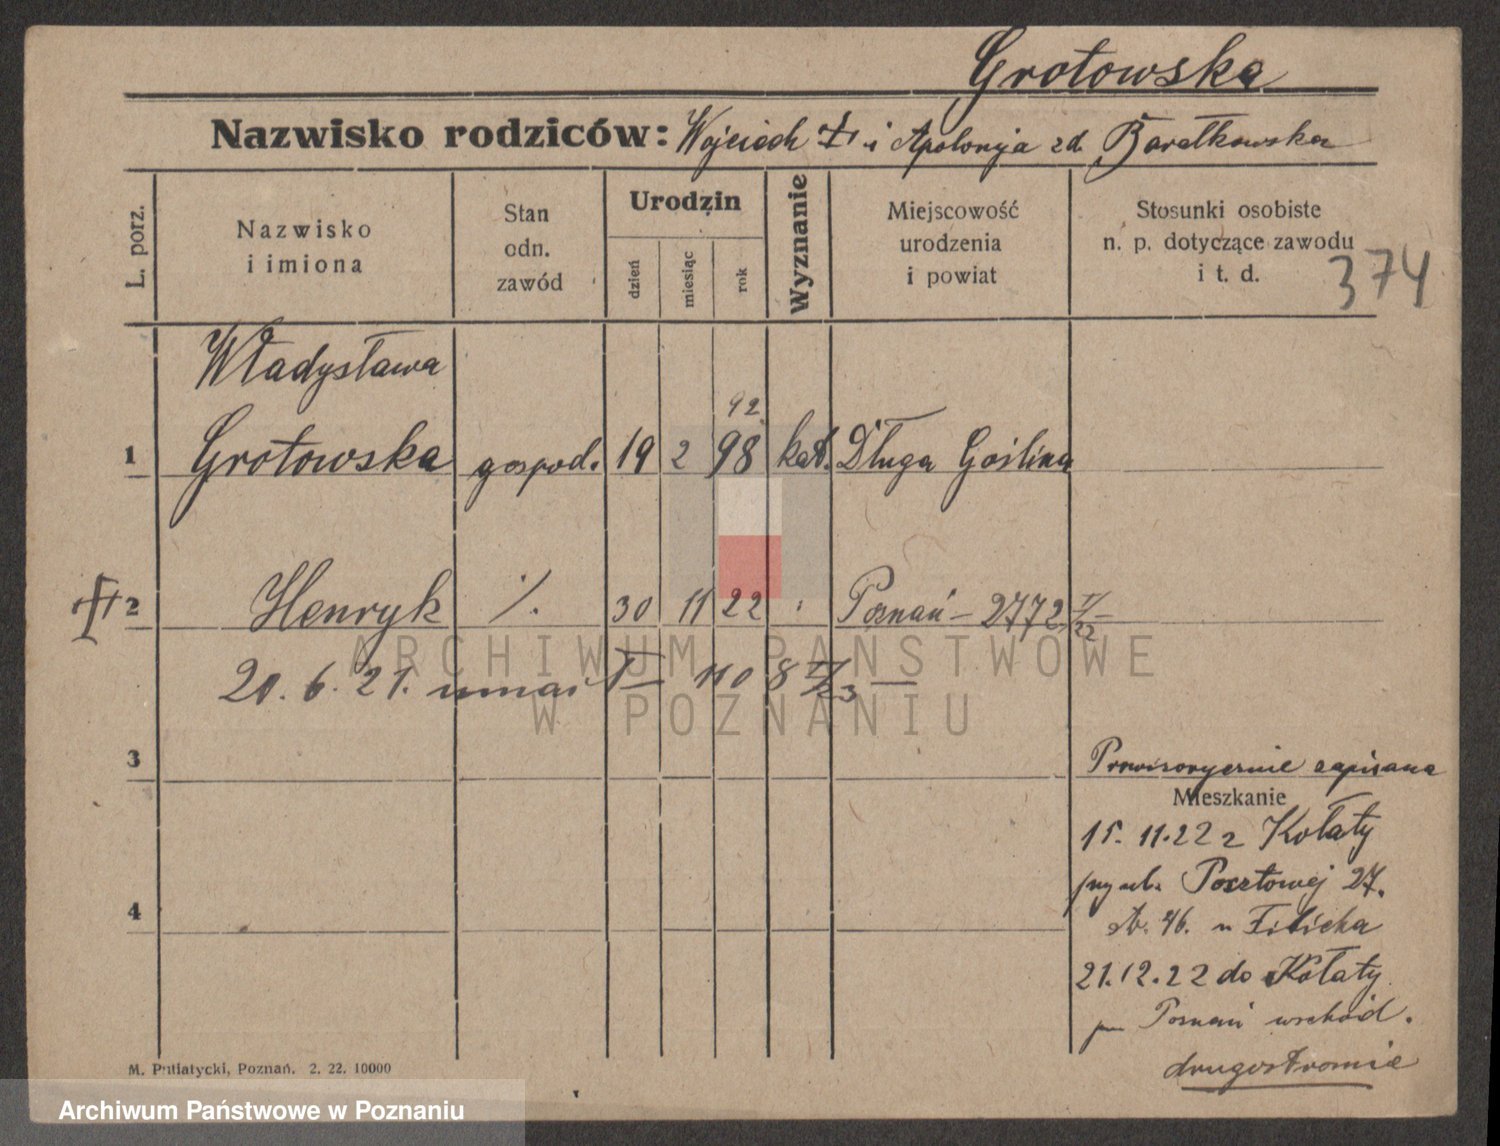 Grotowska
Nazwisko rodziców: Wojciech i Apolonja zd. Baratkowska
L. porz.
Nazwisko i imiona
Stan odn. zawód
Urodzin
dzień
miesiąc
rok
Wyznanie
Miejscowość urodzenia i powiat
Stosunki osobiste n. p. dotyczące zawodu i t. d.
374
Władysława
92.
1 Grotowska gospod. 19 2 98 kat. Długa Goślina
2 Henryk 30 11 22 Poznań - 2772 V/22
20. 6. 21.
3
Prowizorycznie zapisana
Mieszkanie
15. 11. 22 z Kołaty
przy ul. Pocztowej 27.
21. 12. 22 do Kołaty
4
Poznań wschód.
drugostronnie
M. Putiatycki, Poznań. 2. 22. 10000
ARCHIWUM PAŃSTWOWE
W POZNANIU
Archiwum Państwowe w Poznaniu